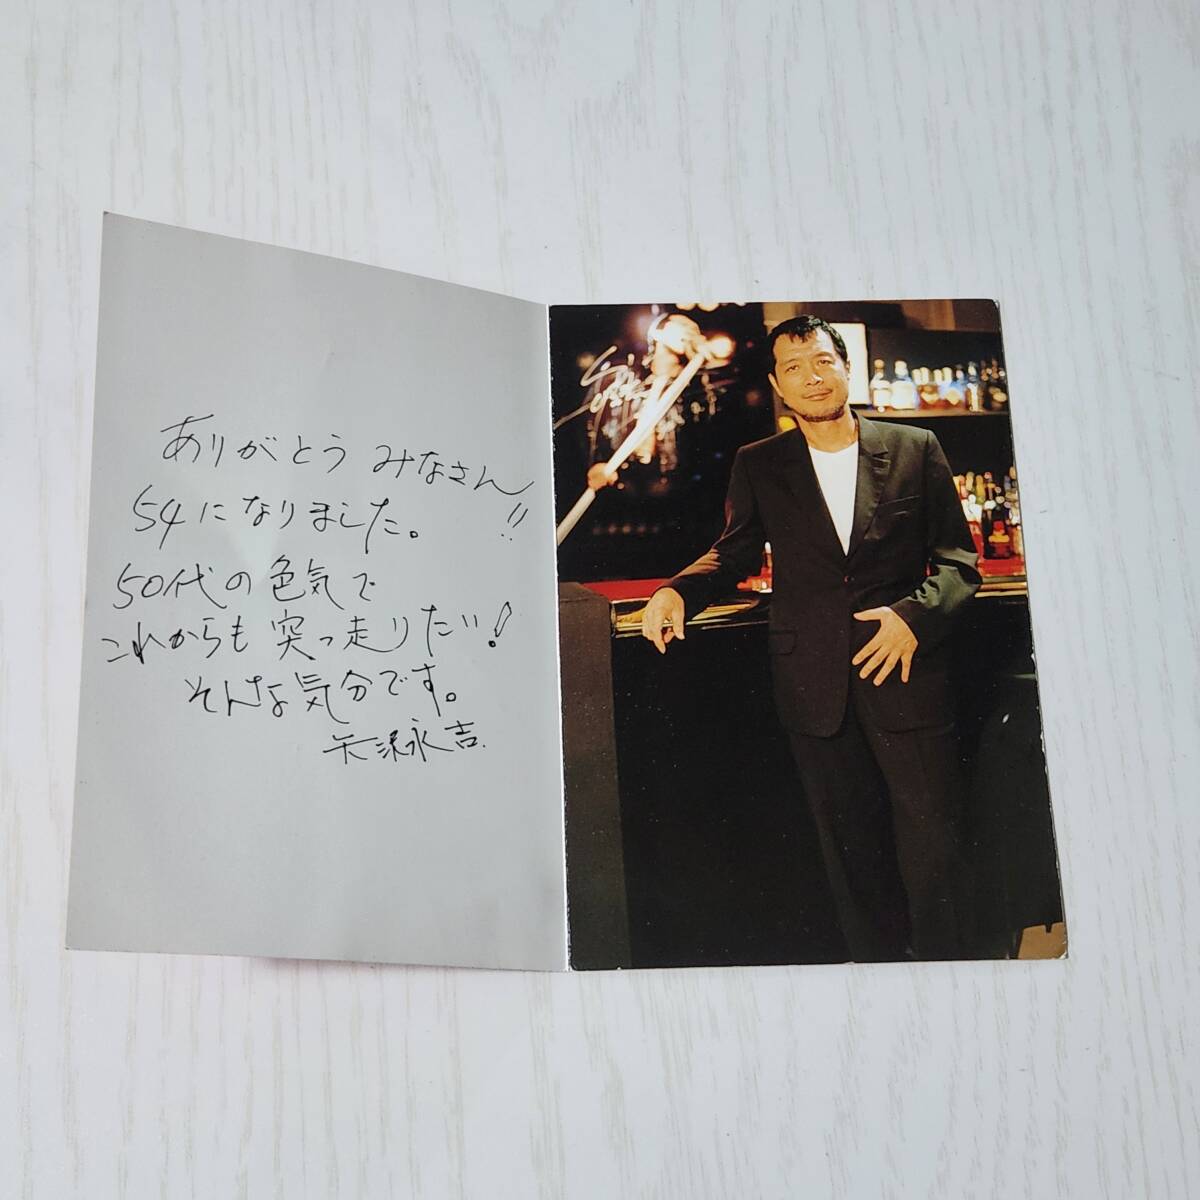 ありがとう みなさん!!
54になりました。
50代の色気で
これからも突っ走りたい!
そんな気分です。
矢沢永吉.